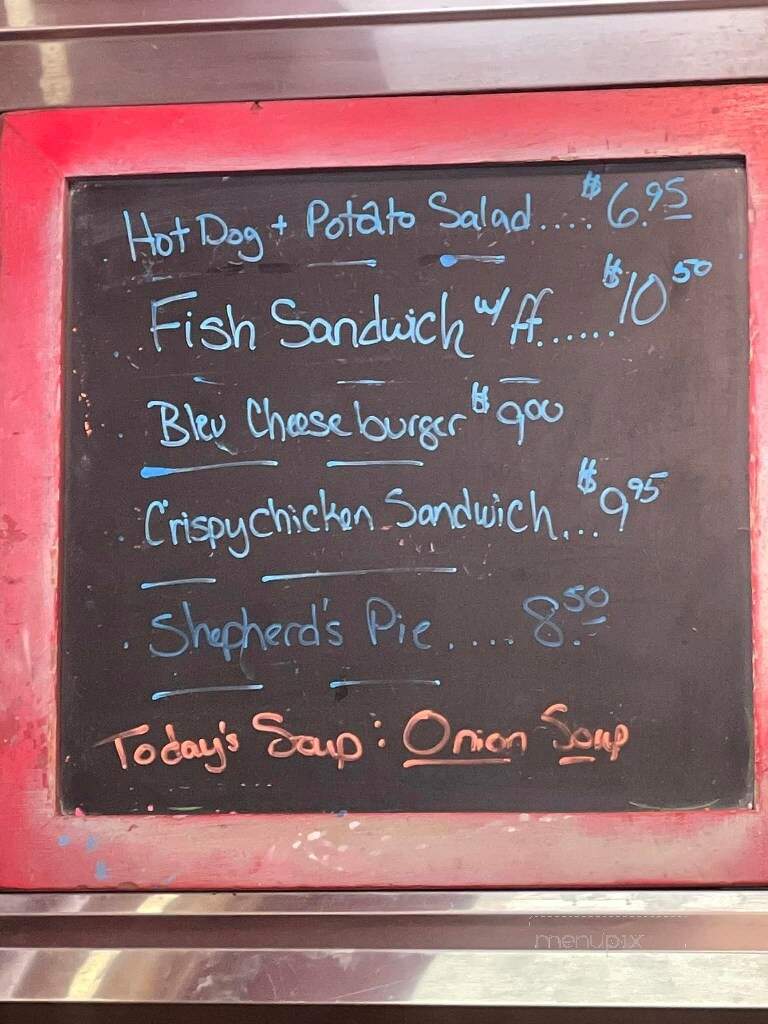 Hot Dog + Potato Salad..... $6.95
Fish Sandwich w/ ff...... $10 50
Bleu Cheese burger $9 00
Crispy chicken Sandwich... $9 95
Shepherd's Pie..... 8.50
Today's Soup: Onion Soup
menupix